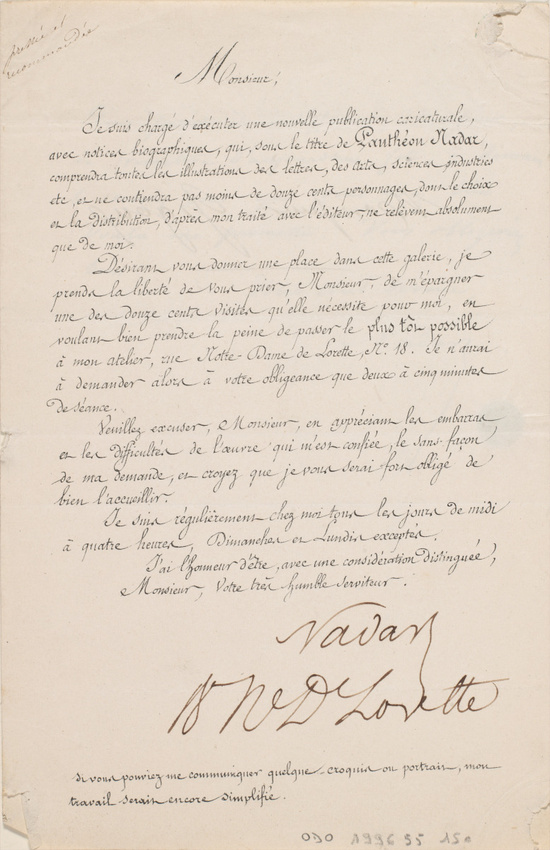 pressée et
recommandée
Monsieur,
Je suis chargé d'exécuter une nouvelle publication caricaturale,
avec notices biographiques, qui, sous le titre de Panthéon Nadar,
comprendra toutes les illustrations des lettres, des arts, sciences industries
etc, et ne contiendra pas moins de douze cents personnages, dont le choix
et la distribution, d'après mon traité avec l'éditeur, ne relèvent absolument
que de moi.
Désirant vous donner une place dans cette galerie, je
prends la liberté de vous prier, Monsieur, de m'épargner
une des douze cents visites qu'elle nécessite pour moi, en
voulant bien prendre la peine de passer le plus tôt possible
à mon atelier, rue Notre-Dame de Lorette, No. 18. Je n'aurai
à demander alors à votre obligeance que deux à cinq minutes
de séance.
Veuillez excuser, Monsieur, en appréciant les embarras
et les difficultés de l'œuvre qui m'est confiée, le sans-façon
de ma demande, et croyez que je vous serai fort obligé de
bien l'accueillir.
Je suis régulièrement chez moi tous les jours de midi
à quatre heures, Dimanches et Lundis exceptés.
J'ai l'honneur d'être, avec une considération distinguée,
Monsieur, Votre très humble serviteur.
Nadar
18 N De Lorette
si vous pouviez me communiquer quelque croquis ou portrait, mon
travail serait encore simplifié.
ODO 1996 95 150